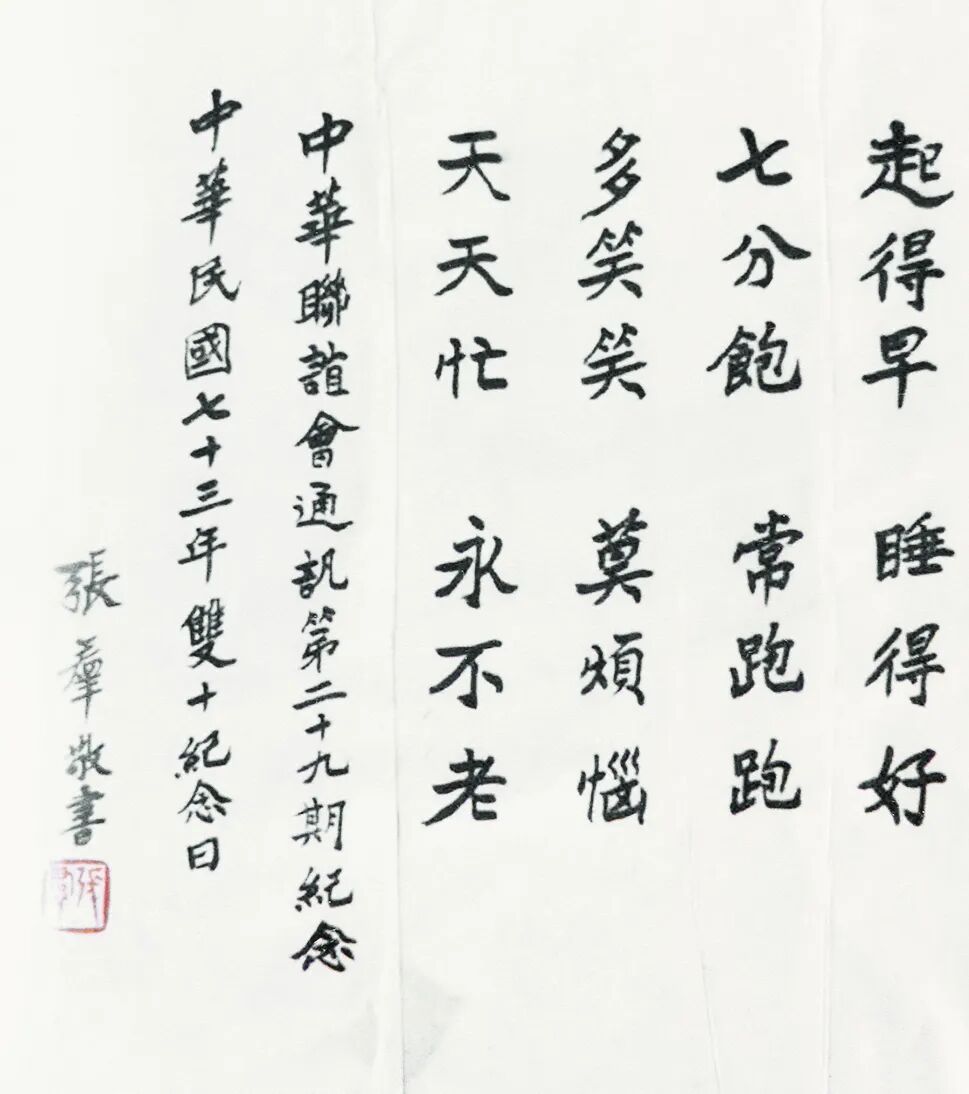 起得早 睡得好
七分飽 常跑跑
多笑笑 莫煩惱
天天忙 永不老
中華聯誼會通訊第二十九期紀念
中華民國七十三年雙十紀念日
張羣敬書